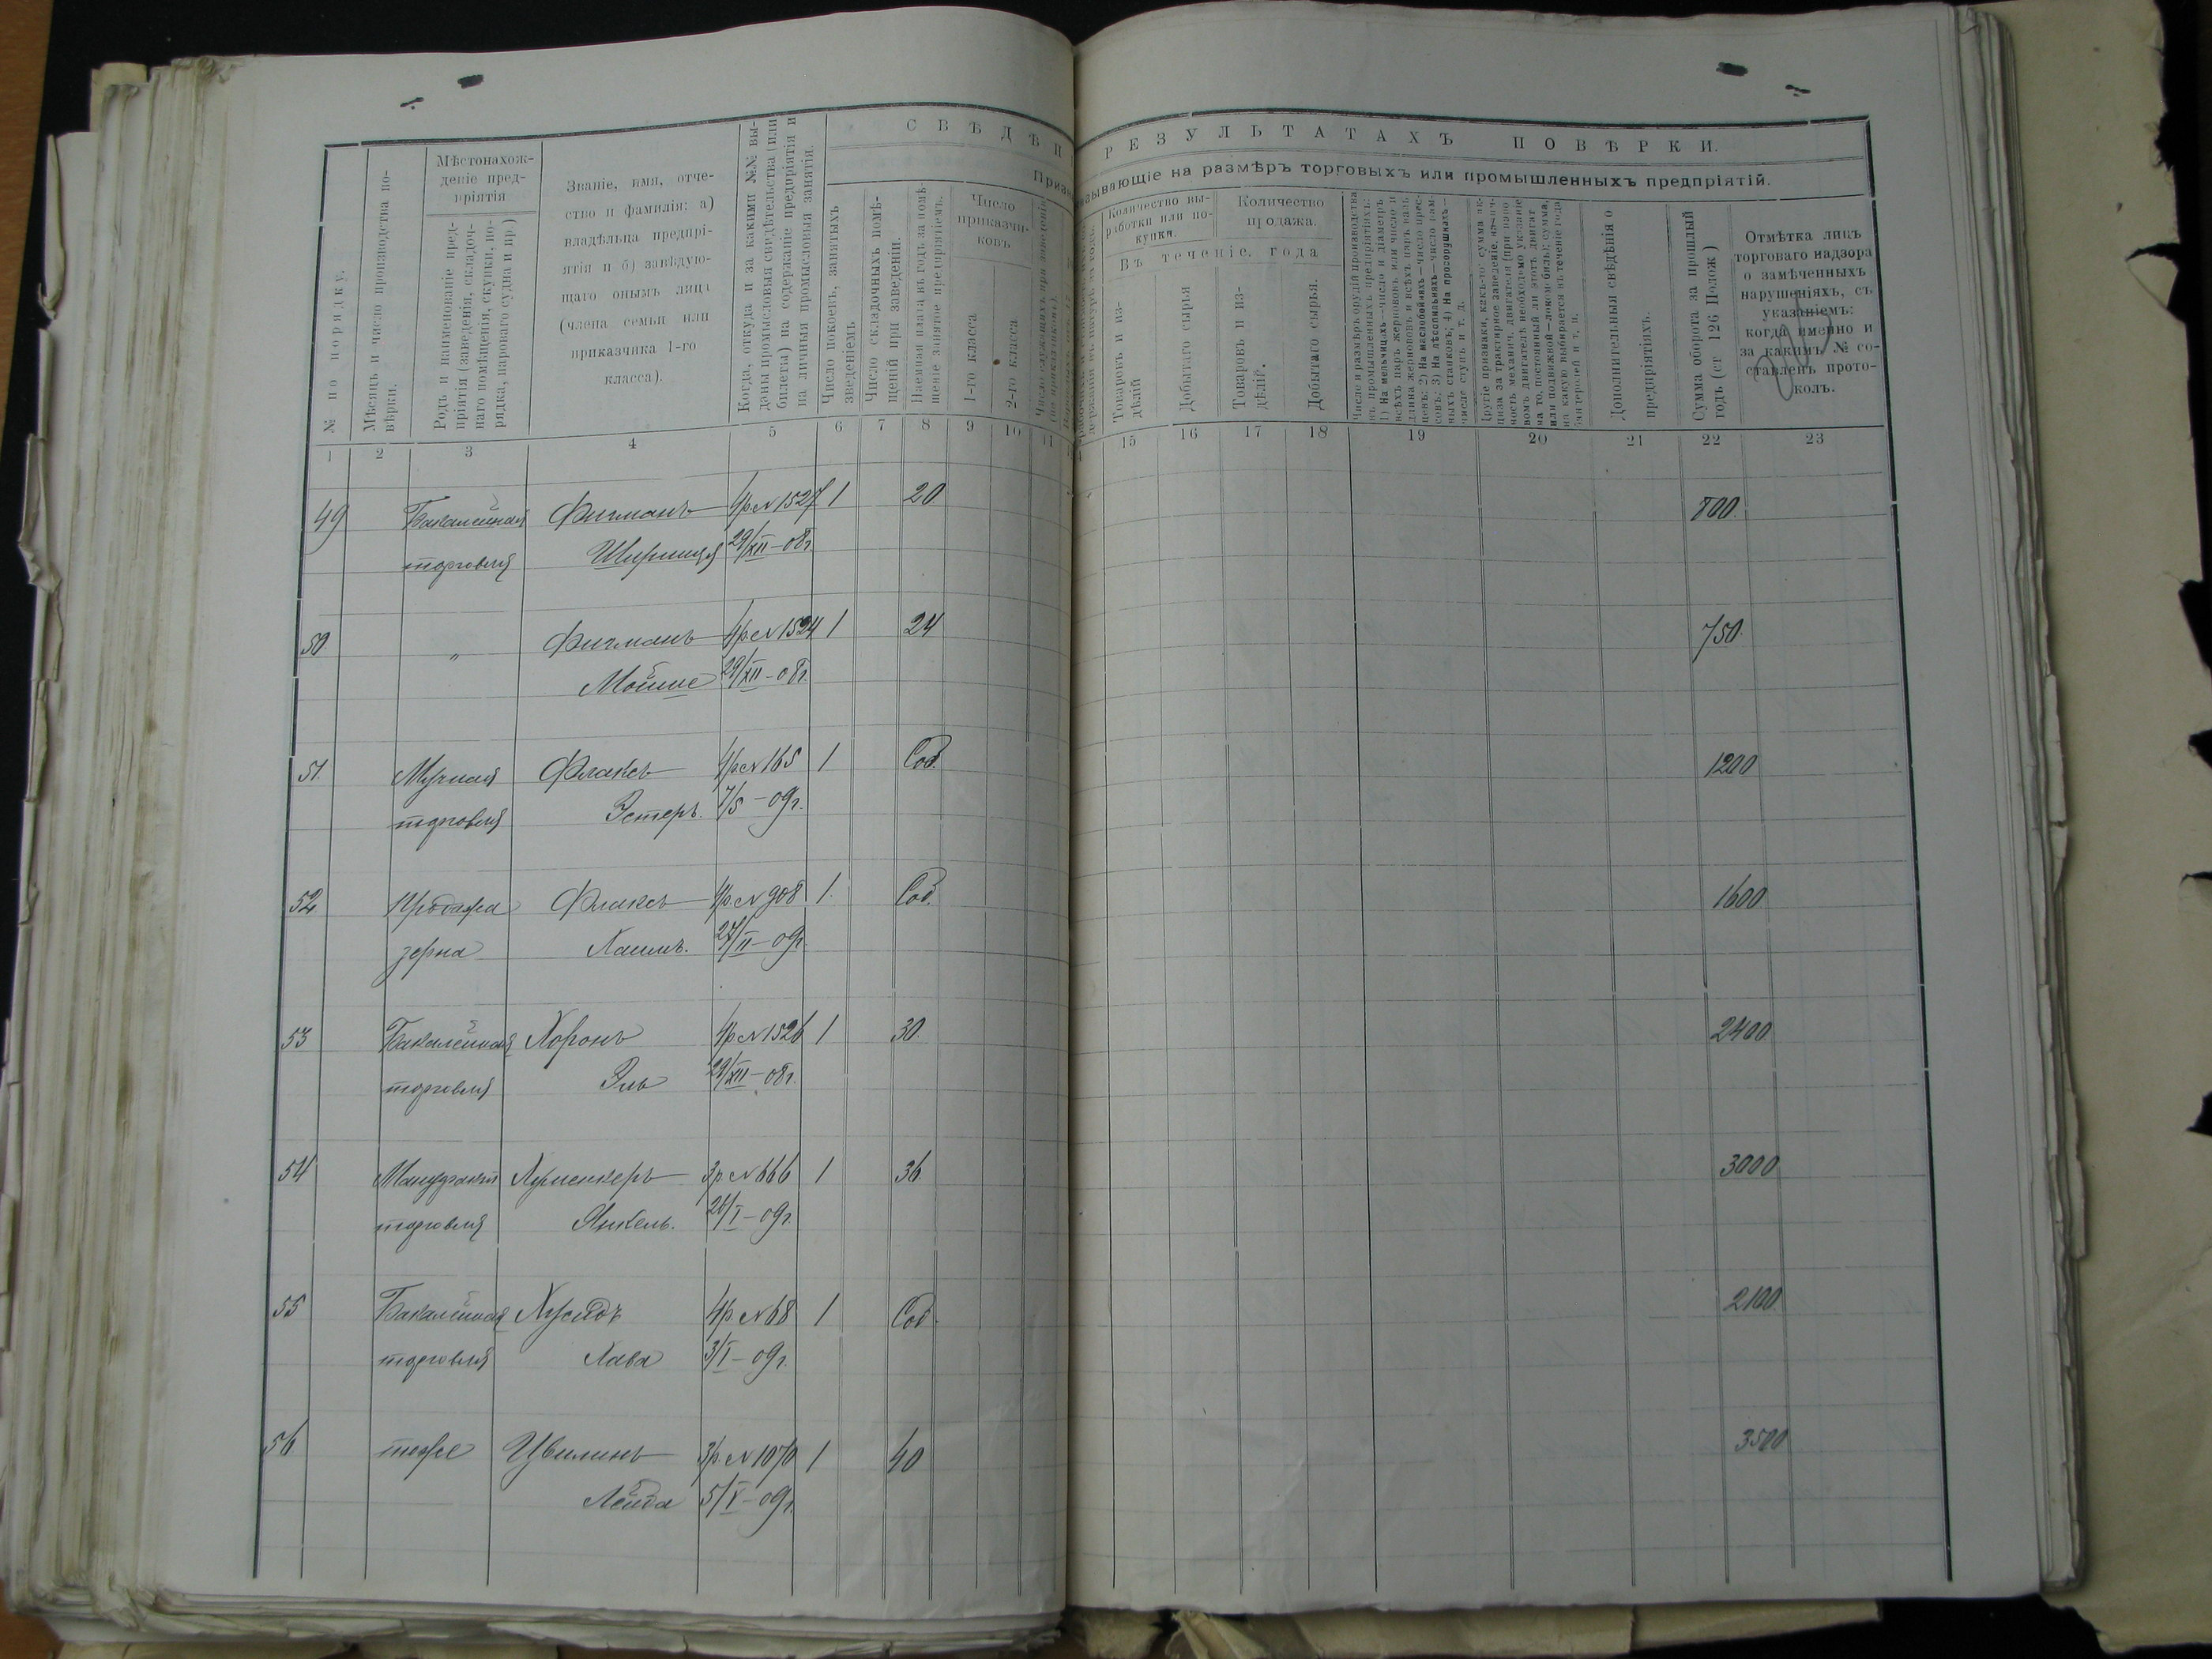 СВѢДѢН
РЕЗУЛЬТАТАХЪ ПОВѢРКИ.
Призн
зывающіе на размѣръ торговыхъ или промышленныхъ предпріятій.
№ по порядку.
Мѣсяцъ и число производства по-
вѣрки.
Мѣстонахож-
деніе пред-
пріятія
Родъ и наименованіе пред-
пріятія (заведенія, складоч-
наго помѣщенія, скупки, по-
рядка, парового судна и пр.)
Званіе, имя, отче-
ство и фамилія: а)
владѣльца предпрі-
ятія и б) завѣдую-
щаго онымъ лица
(члена семьи или
приказчика 1-го
класса).
Когда, откуда и за какими №№ вы-
даны промысловыя свидѣтельства (или
билеты) на содержаніе предпріятія и
на личныя промысловыя занятія.
Число покоевъ, занятыхъ
зведеніемъ
Число складочныхъ помѣ-
щеній при заведеніи.
Наемная плата въ годъ за помѣ-
щеніе занятое предпріятіемъ.
Число
приказчи-
ковъ
1-го класса
2-го класса
Количество вы-
работки или по-
купки.
Количество
продажа.
Въ теченіе года
Товаровъ и из-
дѣлій
Добытаго сырья
Товаровъ и из-
дѣлій.
Добытаго сырья.
Число и размѣръ орудій производства
въ промышленныхъ предпріятіяхъ:
1) На мельницахъ—число и діаметръ
всѣхъ паръ жернововъ или число и
длина жернововъ и всѣхъ паръ валь
цевъ: 2) На маслобойняхъ—число прес-
совъ: 3) На лѣсопильняхъ—число рам-
ныхъ станковъ; 4) На просорушкахъ—
числе ступъ и т. д.
Другіе признаки, какъ-то: сумма ак-
циза за трактирное заведеніе,
Дополнительныя свѣдѣнія о
предпріятіяхъ.
Сумма оборота за прошлый
годъ (ст 126 Полож )
Отмѣтка лицъ
торговаго надзора
о замѣченныхъ
нарушеніяхъ, съ
указаніемъ:
когда именно и
за какимъ № со-
ставленъ прото-
колъ.
1 2 3 4 5 6 7 8 9 10 11 15 16 17 18 19 20 21 22 23
49 Бакалейная Фигманъ 4р № 1527 1 20 800.
торговля Ширинця 29/XII–08г.
50 „ Фигманъ 4р № 1524 1 24 750.
Мойше 29/XII–08г.
51. Мучная Флаксъ 4р № 165 1 Соб. 1200
торговля Эстеръ. 7/5–09г.
52 Продажа Флаксъ 4р № 908 1. Соб. 1600
зерна Хаимъ. 27/II–09г.
53 Бакалейная Хоронъ 4р № 1526 1 30. 2400
торговля Эль 29/XII–08г.
54 Мануфакт 3р № 666 1 36 3000
торговля Янкель. 26/I–09г.
55 Бакалейная Хусидъ 4р. № 68 1 Соб. 2100
торговля Хава 3/I–09г.
56 тоже Цвилинъ 3р № 1070 1 40 3500
Лейба 5/V–09г.